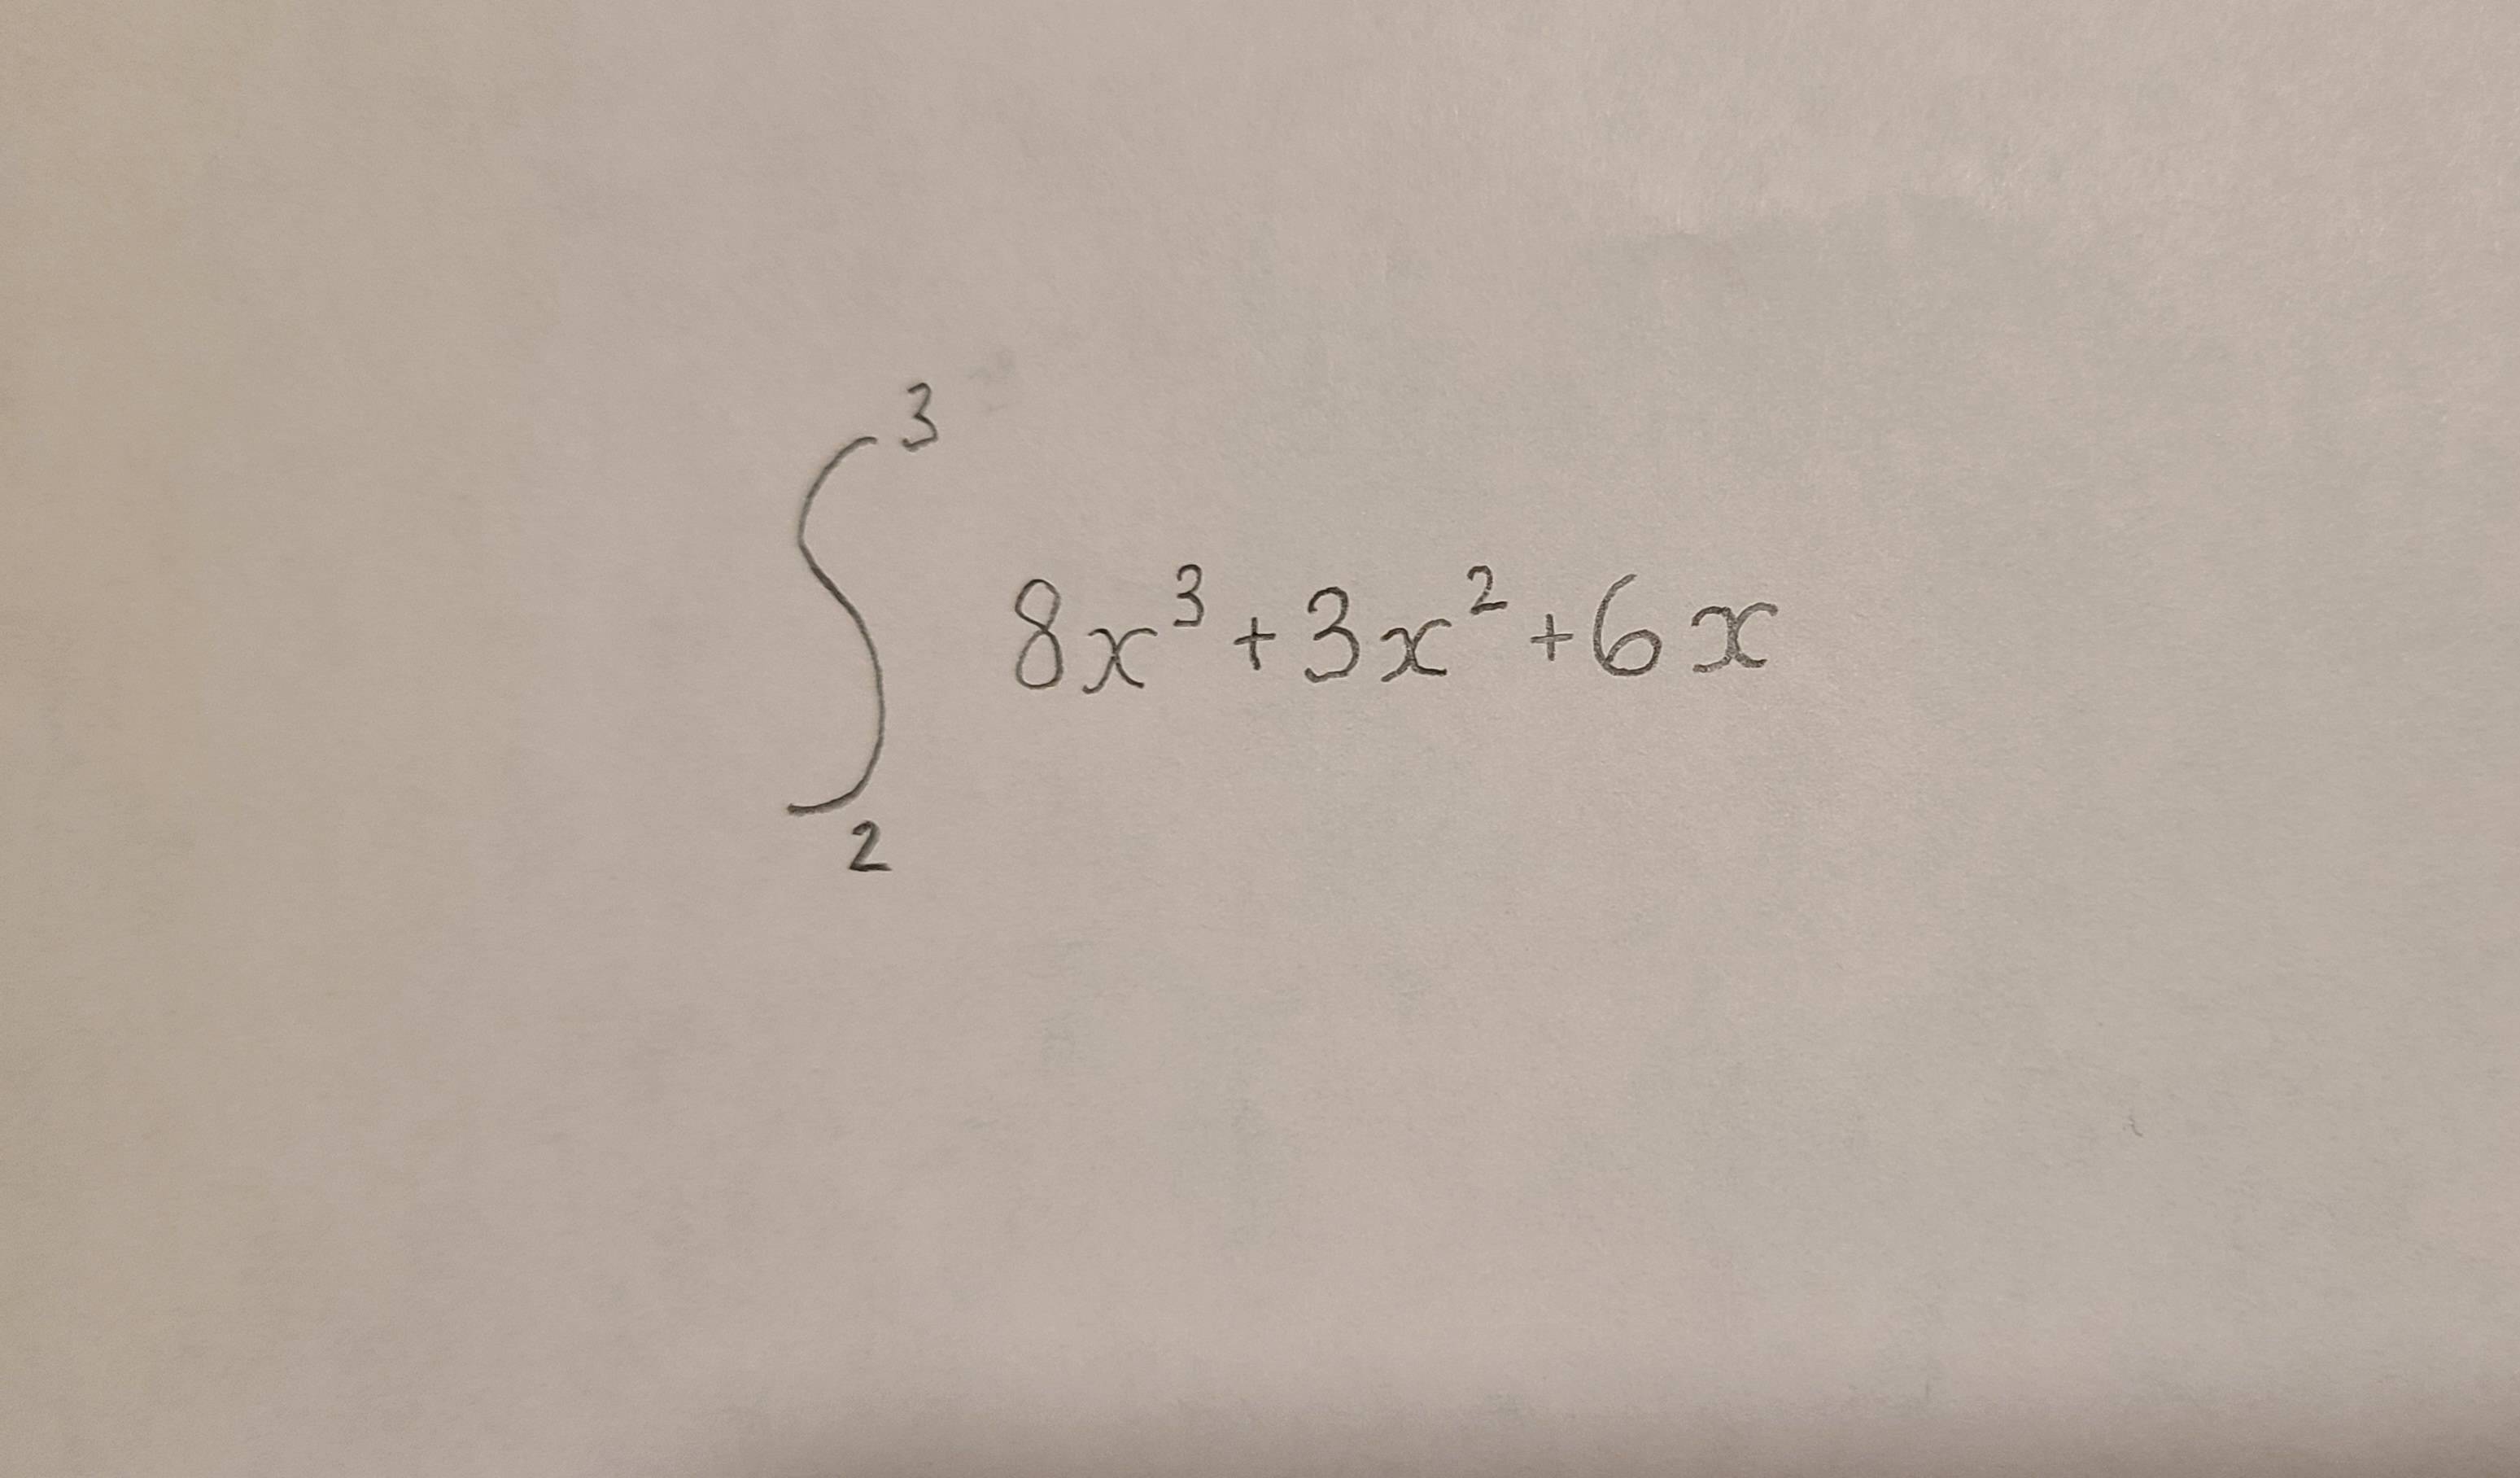 ∫₂³ 8x³+3x²+6x